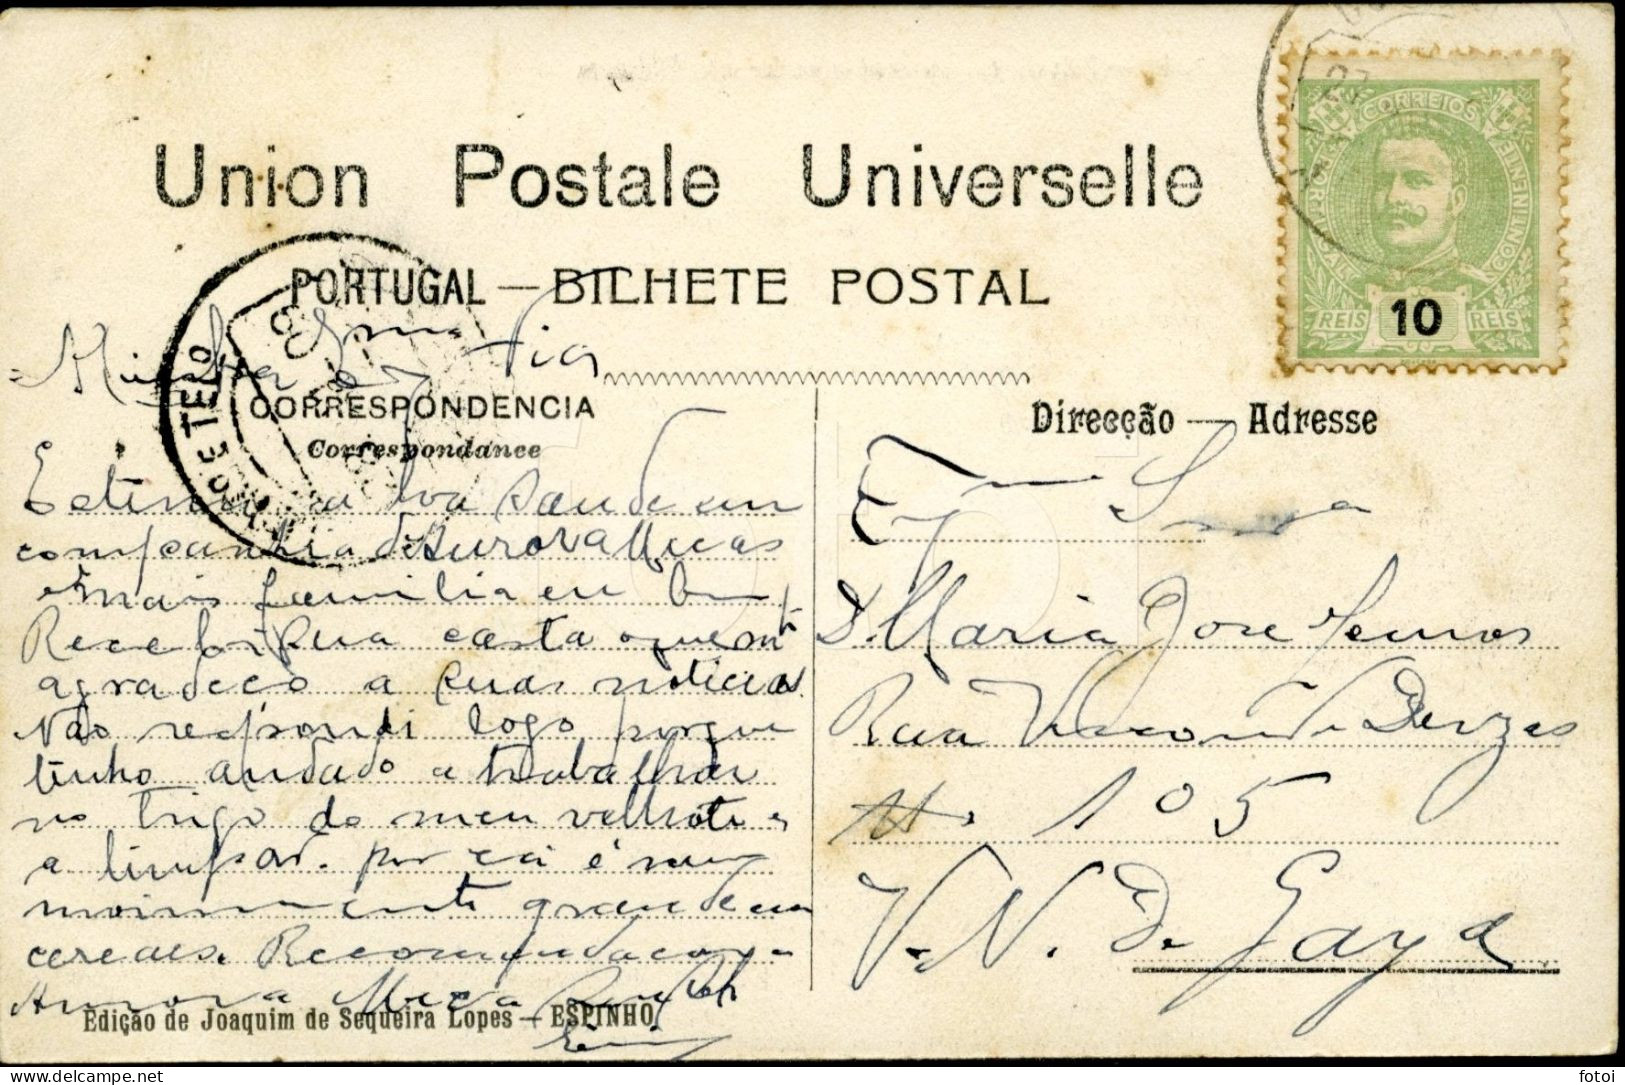 Union Postale Universelle
PORTUGAL — BILHETE POSTAL
CORREIOS
PORTUGAL
CONTINENTE
REIS 10 REIS
Minha Exma Tia
CORRESPONDENCIA
Correspondance
Direcção — Adresse
Estimo a boa saude em
companhia de Aurora Micas
e mais familia eu bem
Recebi sua carta o que mt
agradeço a suas noticias
Não respondi logo porque
tenho andado a trabalhar
no trigo do meu velhote e
a limpar. por cá é um
moimento grande em
cereaes. Recomendaçoes
Aurora Mica
Exma Snra
D. Maria José Lemos
Rua Visconde Devezas
No 105
V. N. de Gaya
Edição de Joaquim de Sequeira Lopes — ESPINHO
delcampe.net
fotoi